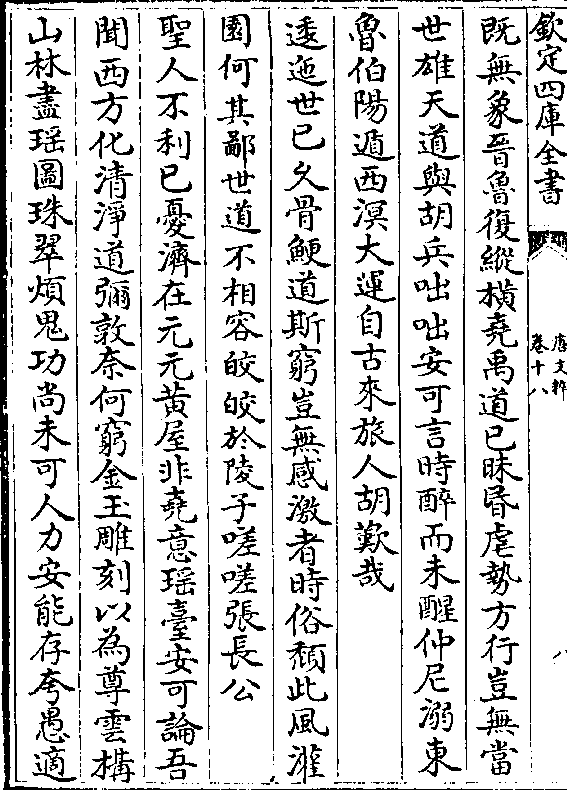 欽定四庫全書
唐文粹
卷十八
八
既無象晉魯復縱橫堯禹道已昧昬虐勢方行豈無當
世雄天道與胡兵咄咄安可言時醉而未醒仲尼溺東
魯伯陽遁西溟大運自古來旅人胡歎哉
逶迤世已久骨鯁道斯窮豈無感激者時俗頽此風灌
園何其鄙世道不相容皎皎於陵子嗟嗟張長公
聖人不利已憂濟在元元黄屋非堯意瑶臺安可論吾
聞西方化清淨道彌敦奈何窮金玉雕刻以為尊雲構
山林盡瑶圖珠翠煩鬼功尚未可人力安能存夸愚適